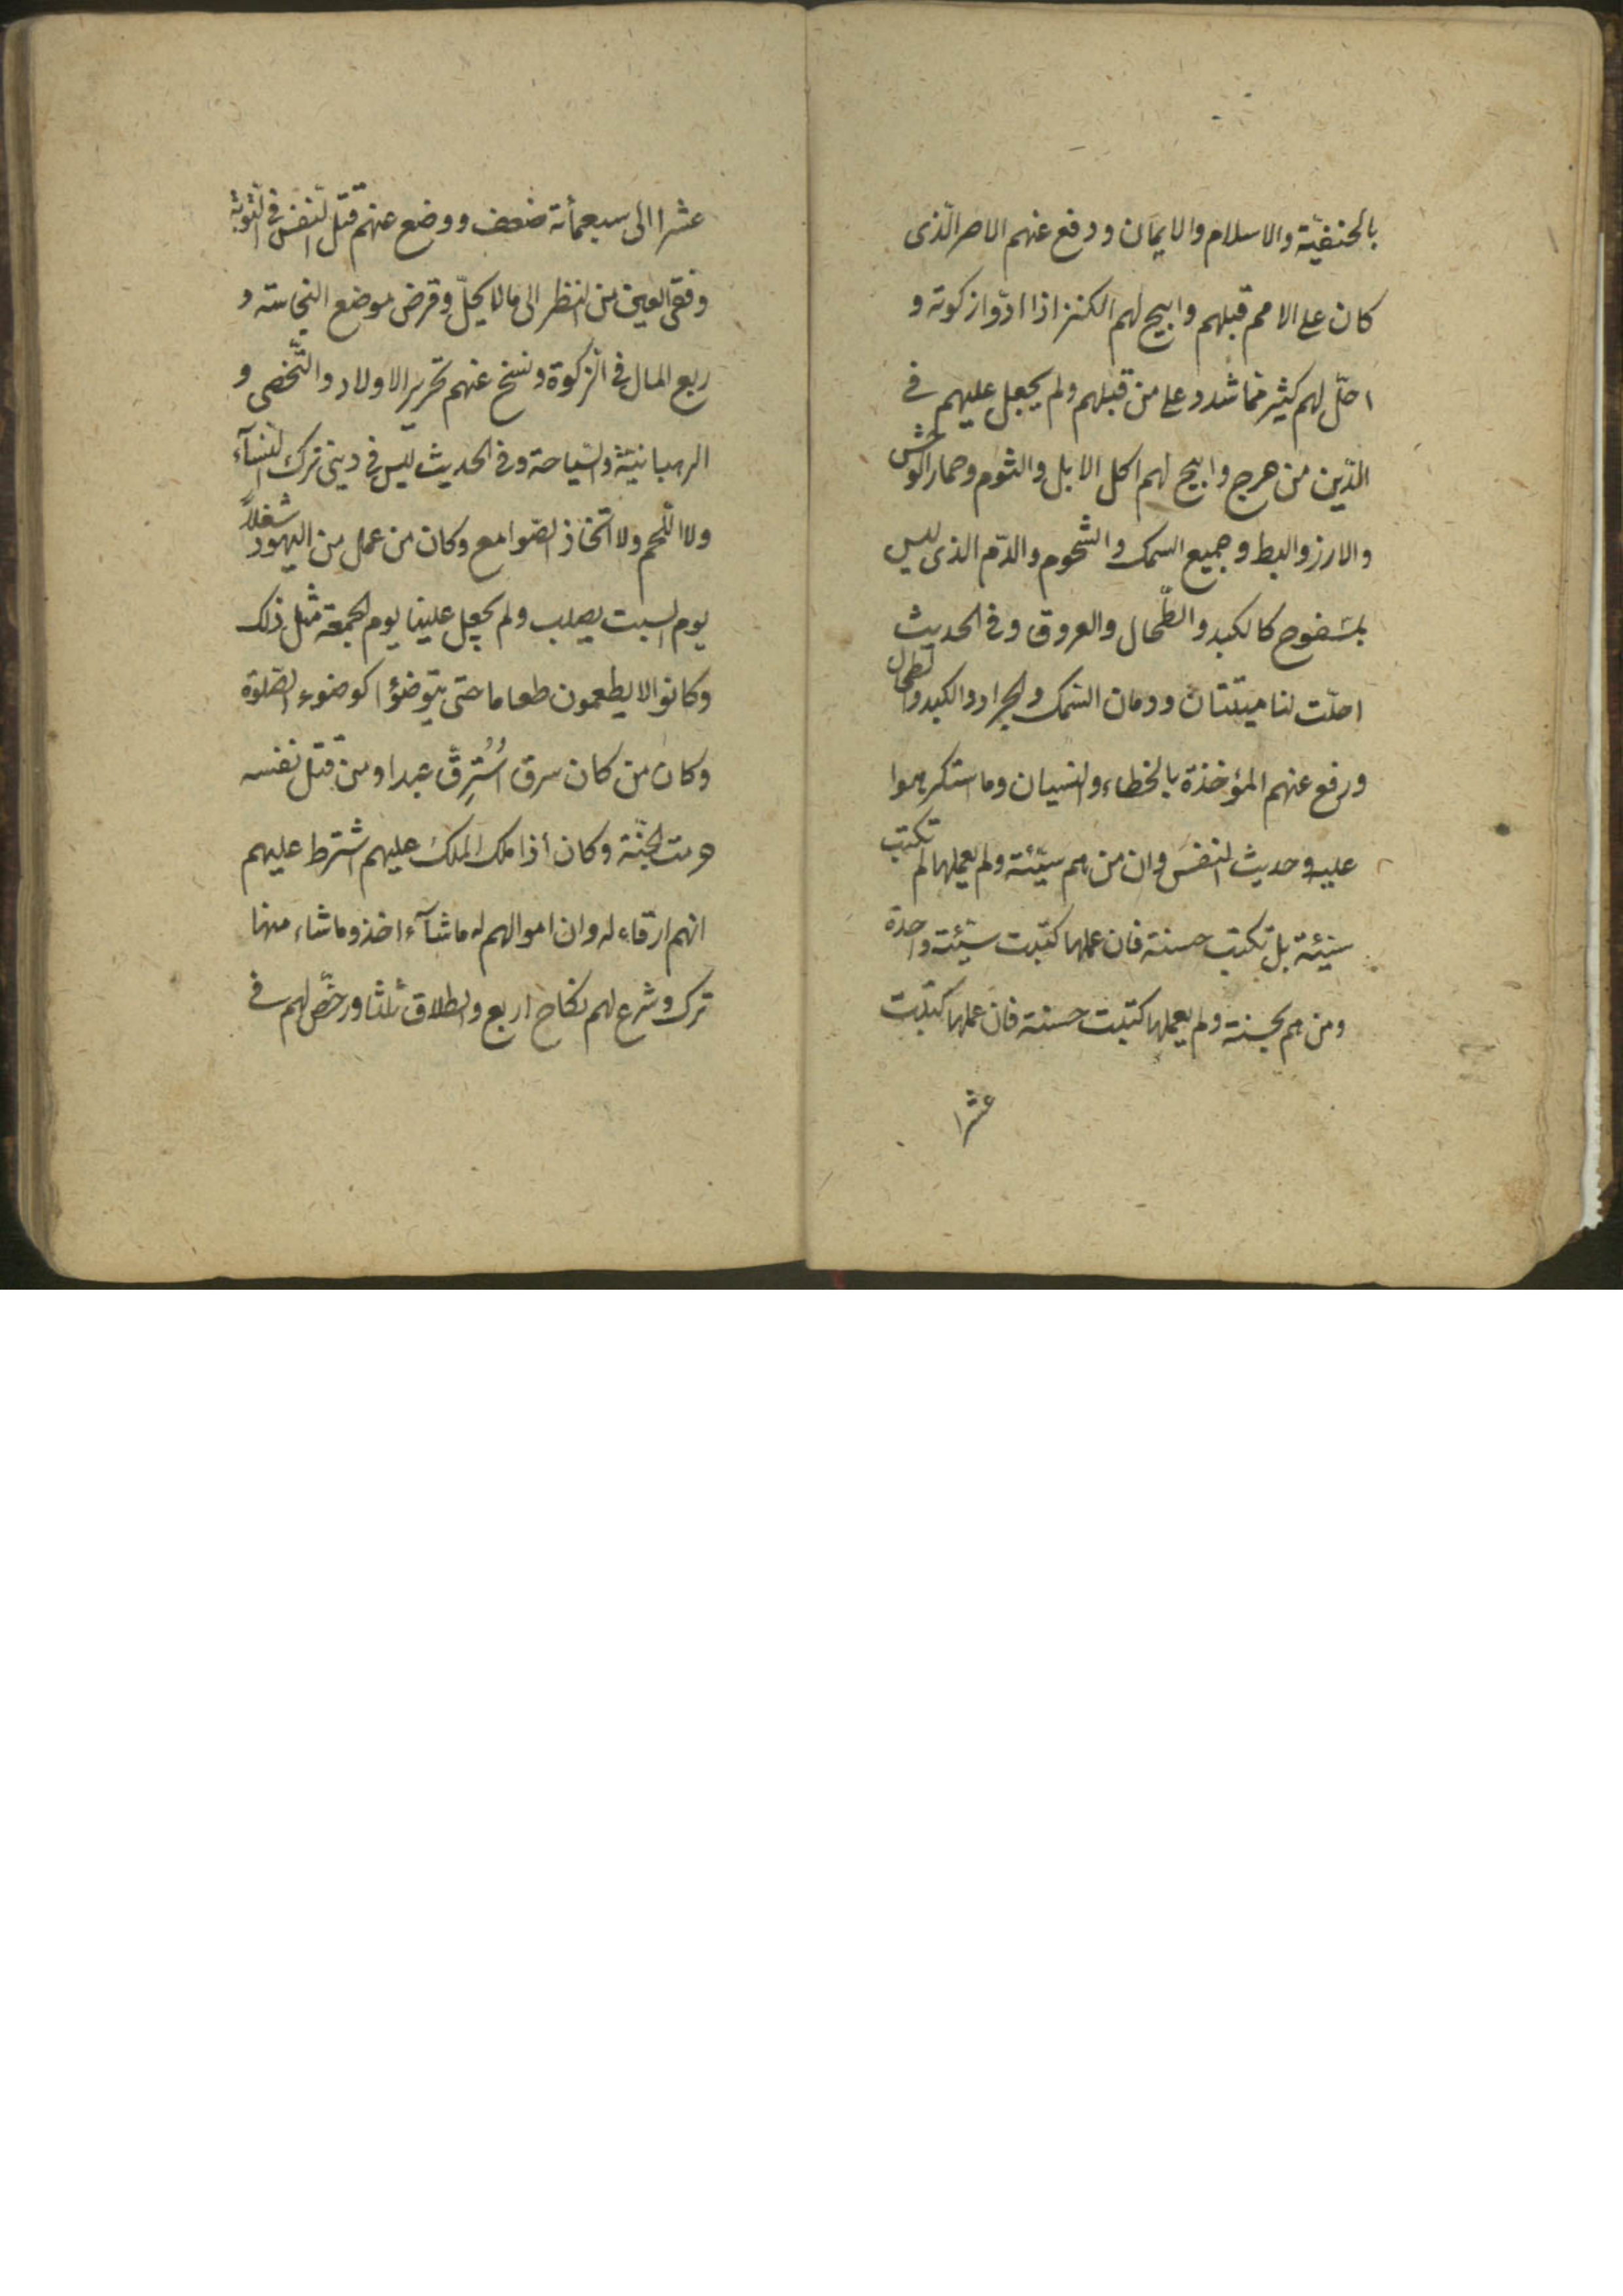 بالحنفيّة والاسلام والايمان ودفع عنهم الاصر الّذى
كان على الامم قبلهم وابيح لهم الكنز اذا ادّوا زكوته و
احلّ لهم كثير مما شدد على من قبلهم ولم يجعل عليهم فى
الدّين من حرج وابيح لهم اكل الابل والثوم وحمار الوحش
والارز والبط وجميع السمك والشحوم والدّم الذى ليس
بمسفوح كالكبد والطّحال والعروق وفى الحديث
احلّت لنا ميتتان ودمان السّمك والجراد والكبد والطحال
ورفع عنهم المؤخذة بالخطاء والنسيان وما استكرهوا
عليه وحديث النفس وان من هم سيّئة ولم يعملها لم تكتب
سيئة بل تكتب حسنة فان عملها كتبت سيّئة واحدة
ومن هم بحسنة ولم يعملها كتبت حسنة فان عملها كتبت
عشرا
عشرا الى سبعمأئة ضعف ووضع عنهم قتل النفس فى التوبة
وفقى العين من النظر الى ما لا يحلّ وقرض موضع النجاسته و
ربع المال فى الزكوة ونسخ عنهم تحرير الاولاد والتّخصى و
الرهبانيّة والسّياحة وفى الحديث ليس فى دينى ترك النسآء
ولا اللّحم ولا اتّخاذ الصّوامع وكان من عمل من اليهود شغلاً
يوم السبت يصلب ولم يجعل علينا يوم الجمعة مثل ذلك
وكانوا لا يطعمون طعاما حتى يتوضؤا كوضوء الصّلوة
وكان من كان سرق اُسْتُرِقّ عبدا ومن قتل نفسه
حرمت الجنّة وكان أذا ملك الملكَ عليهم اشترط عليهم
انهم ارقاء له وان اموالهم له ما شآء اخذ وما شاء منها
ترك وشرع لهم نكاح اربع والطلاق ثلثا ورخّص لهم فى